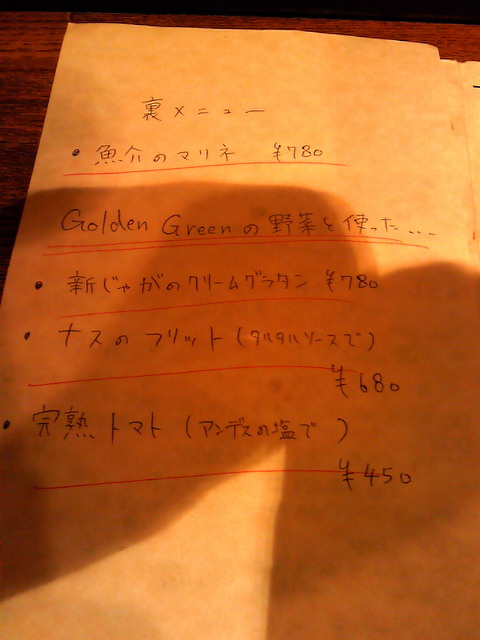 裏メニュー
・魚介のマリネ ¥780
Golden Greenの野菜を使った...
・新じゃがのクリームグラタン ¥780
・ナスのフリット(タルタルソースで)
¥680
・完熟トマト(アンデスの塩で)
¥450